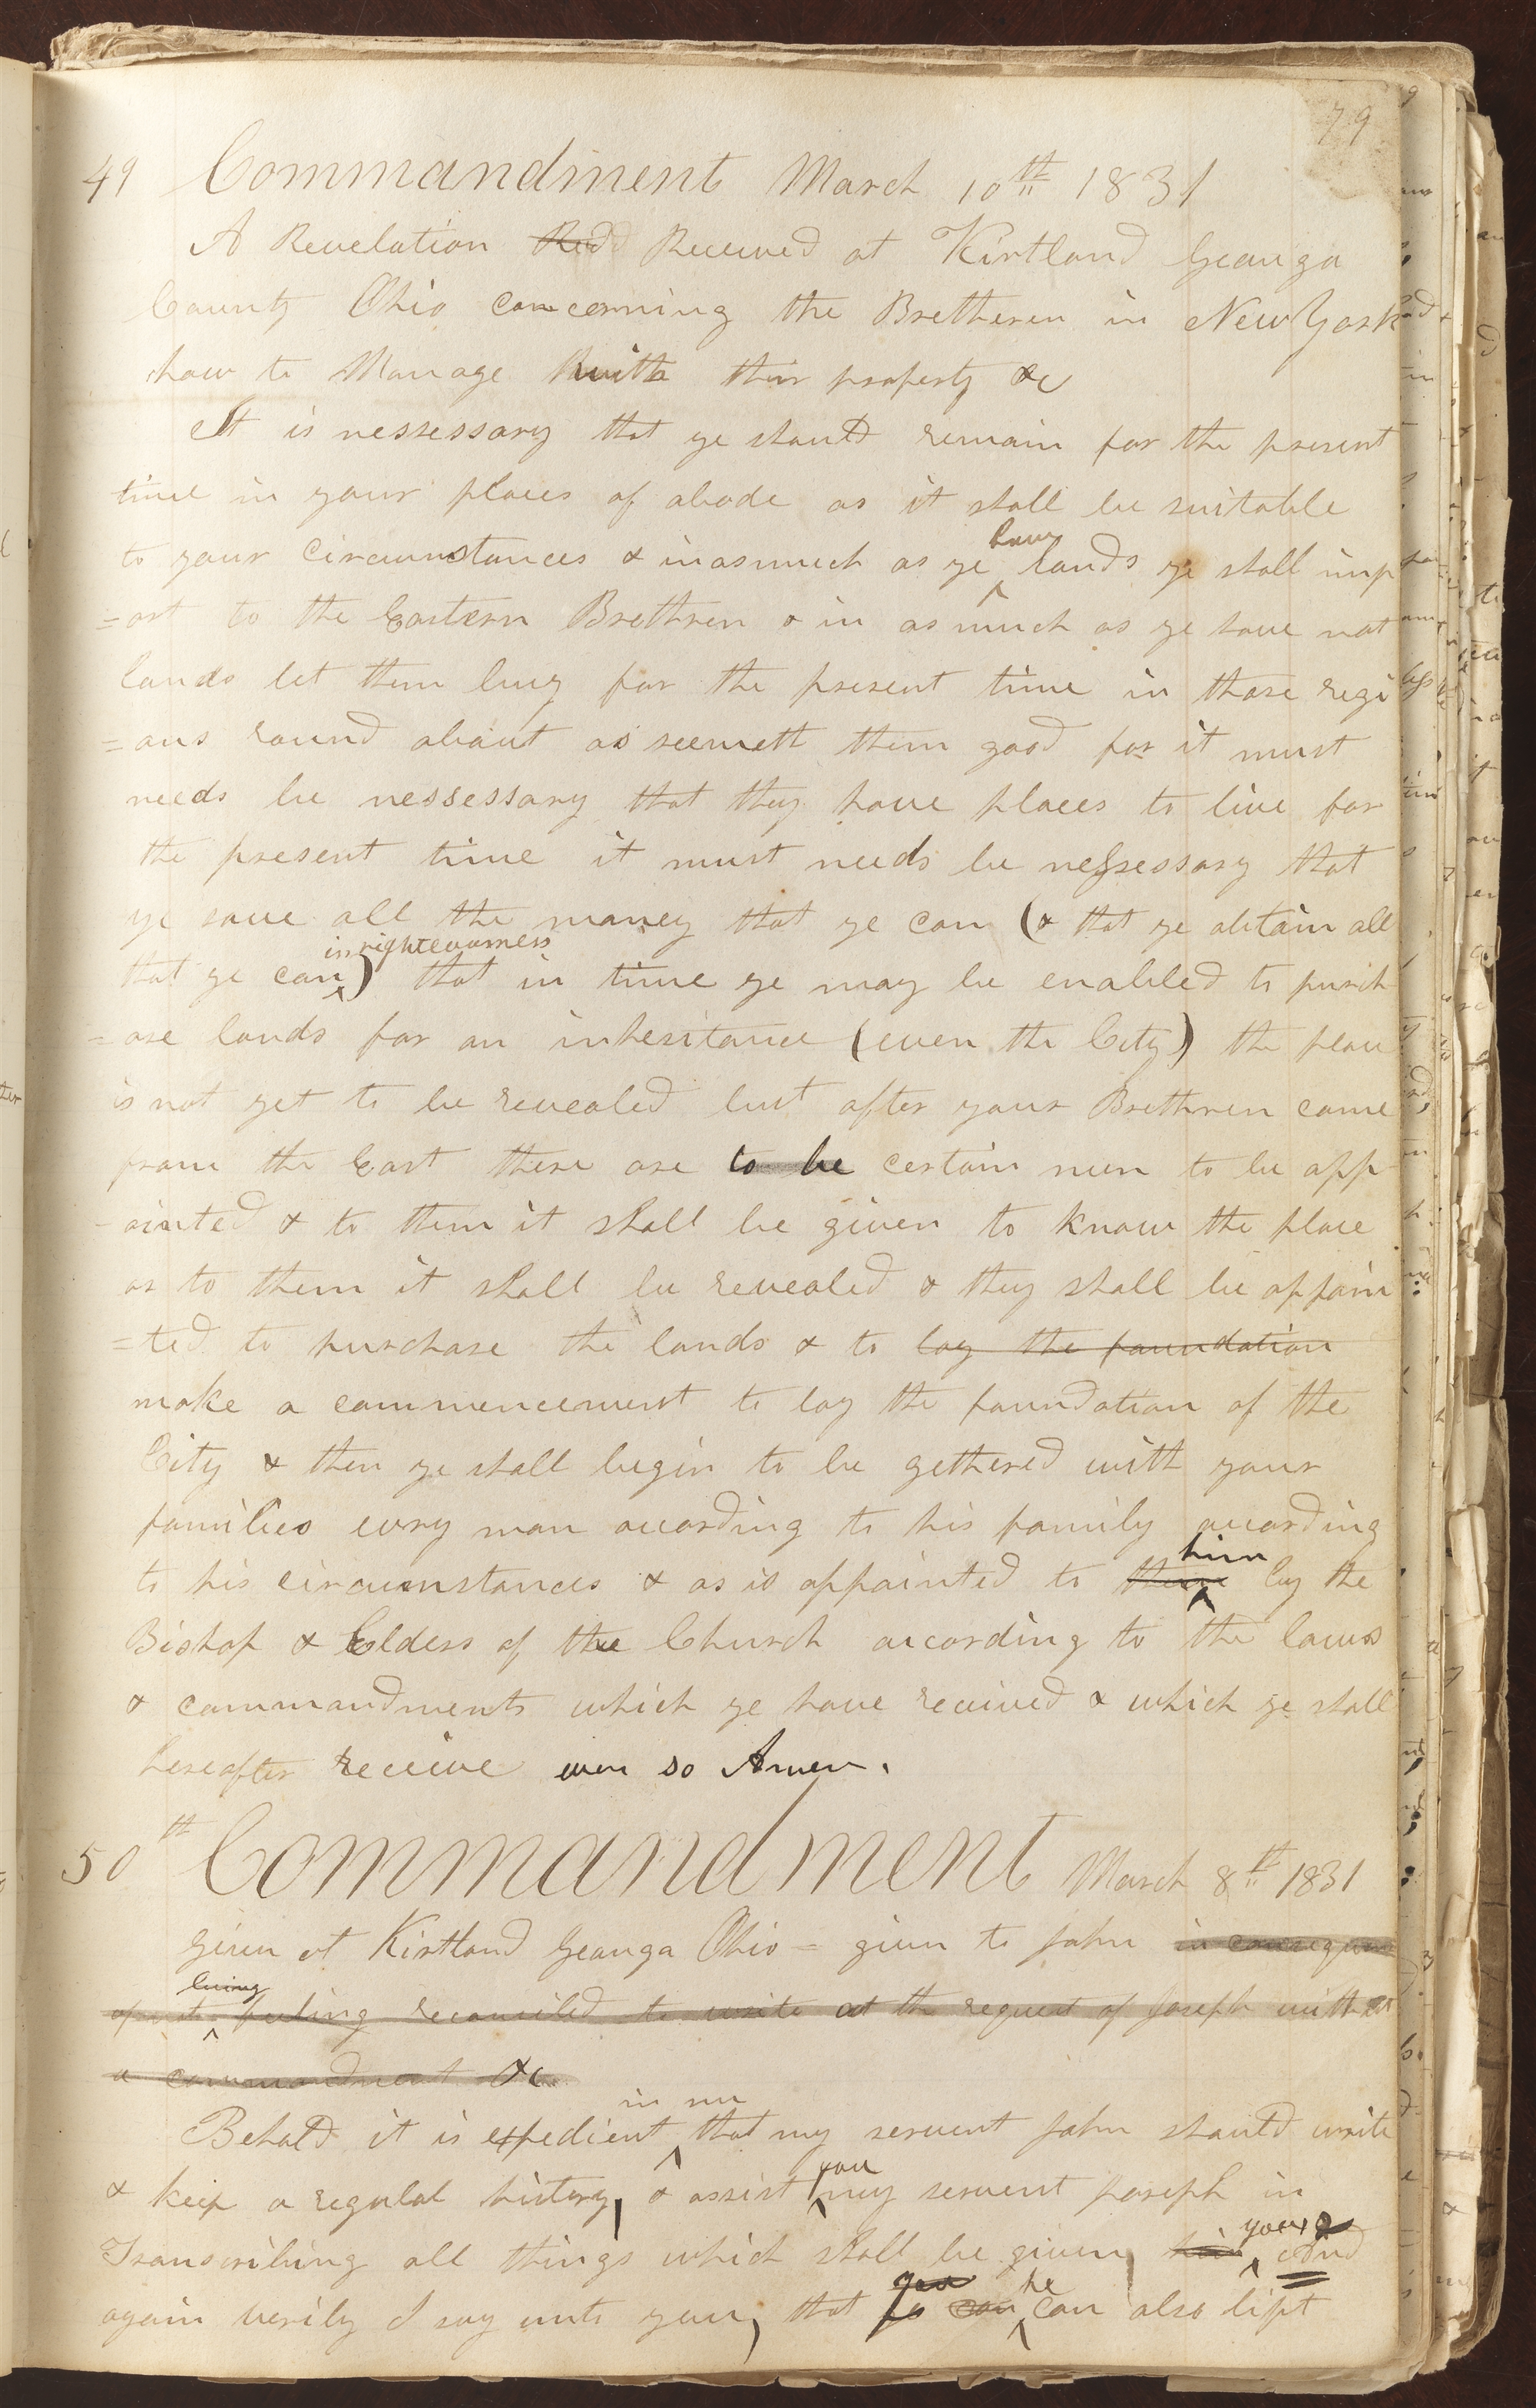 79
49 Commandment March 10th 1831
A Revelation Recd Received at Kirtland Geauga
County Ohio concerning the Bretheren in New York
how to Manage with thir property &c
It is nessessary that ye should remain for the present
time in your places of abode as it shall be suitable
to your circumstances & inasmuch as ye have lands ye shall imp
=art to the Eastern Brethren & in as much as ye have not
lands let them buy for the present time in those regi
=ons round about as seemeth them good for it must
needs be nessessary that they have places to live for
the present time it must needs be nessessary that
ye save all the money that ye can (& that ye obtain all
that ye can in righteousness) that in time ye may be enabled to purch
=ase lands for an inheritance (even the City) the place
is not yet to be revealed but after your Brethren come
from the East there are to be certain men to be app
-ointed & to them it shall be given to know the place
or to them it shall be revealed & they shall be appoin
=ted to purchase the lands & to lay the foundation
make a commencement to lay the foundation of the
City & then ye shall begin to be gethered with your
families evry man according to his family according
to his circumstances & as is appointed to them him by the
Bishop & Elders of the Church according to the laws
& commandments which ye have received & which ye shall
hereafter receive even so Amen.
50th Commandment March 8th 1831
given at Kirtland Geauga Ohio = given to John in consequence
of not being feeling reconciled to write at the request of Joseph without
a commandment &c
Behold it is expedient in me that my servent John should write
& keep a regulal history, & assist you my servent Joseph in
Transcribing all things which shall be given, him you & And
again verily I say unto you, that ye can he can also lift